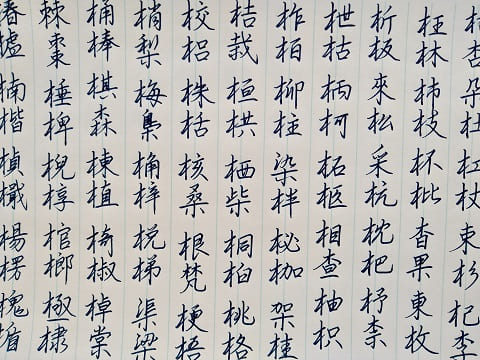 杏朵杜杠杖束杉杞李
枉林枝杯枇杳果東枚
析板來松采杭枕杷杼
枻枯柄柯柘柩相查柚枳
柞柏柳柱染柈柲枷架桂
桔栽桓栱栖柴桐桕桃格
校梠株栝核桑根梵梗梧
梢梨梅梟桷梓梲梯渠梁
桶棒棋森棟植椅椒棹棠
棘棗棰椑棿椁棺榔極棣
椿楠楷楨楊楞槐楯